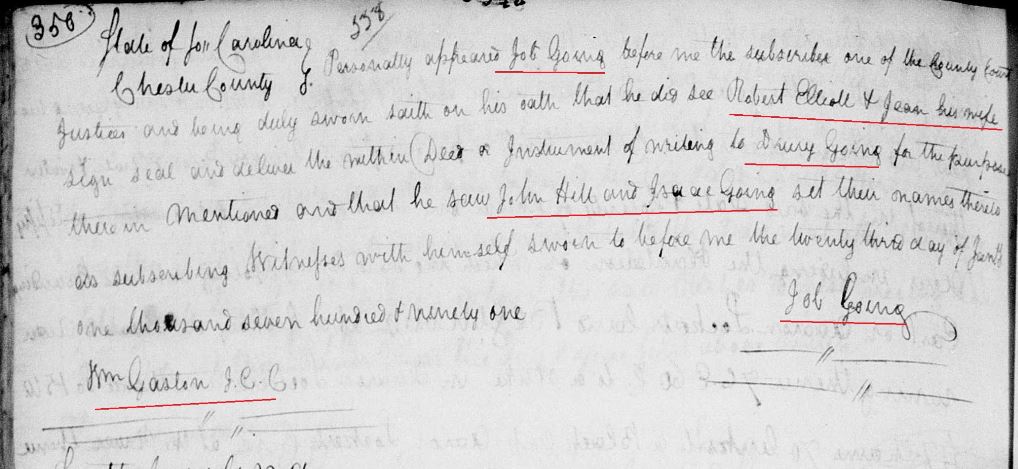 350
338
State of So Carolina }
Chester County }. Personally appeared Job Going before me the subscriber one of the County Court
Justices and being duly sworn saith on his oath that he did see Robert Elliott & Jean his wife
sign seal and deliver the within Deed or Instrument of writing to Drury Going for the purposes
therein Mentioned and that he saw John Hill and Isaac Going set their names thereto
as subscribing Witnesses with himself sworn to before me the twenty third day of Jany
one thousand seven hundred & ninety one
Job Going
Wm Gaston J. C. C